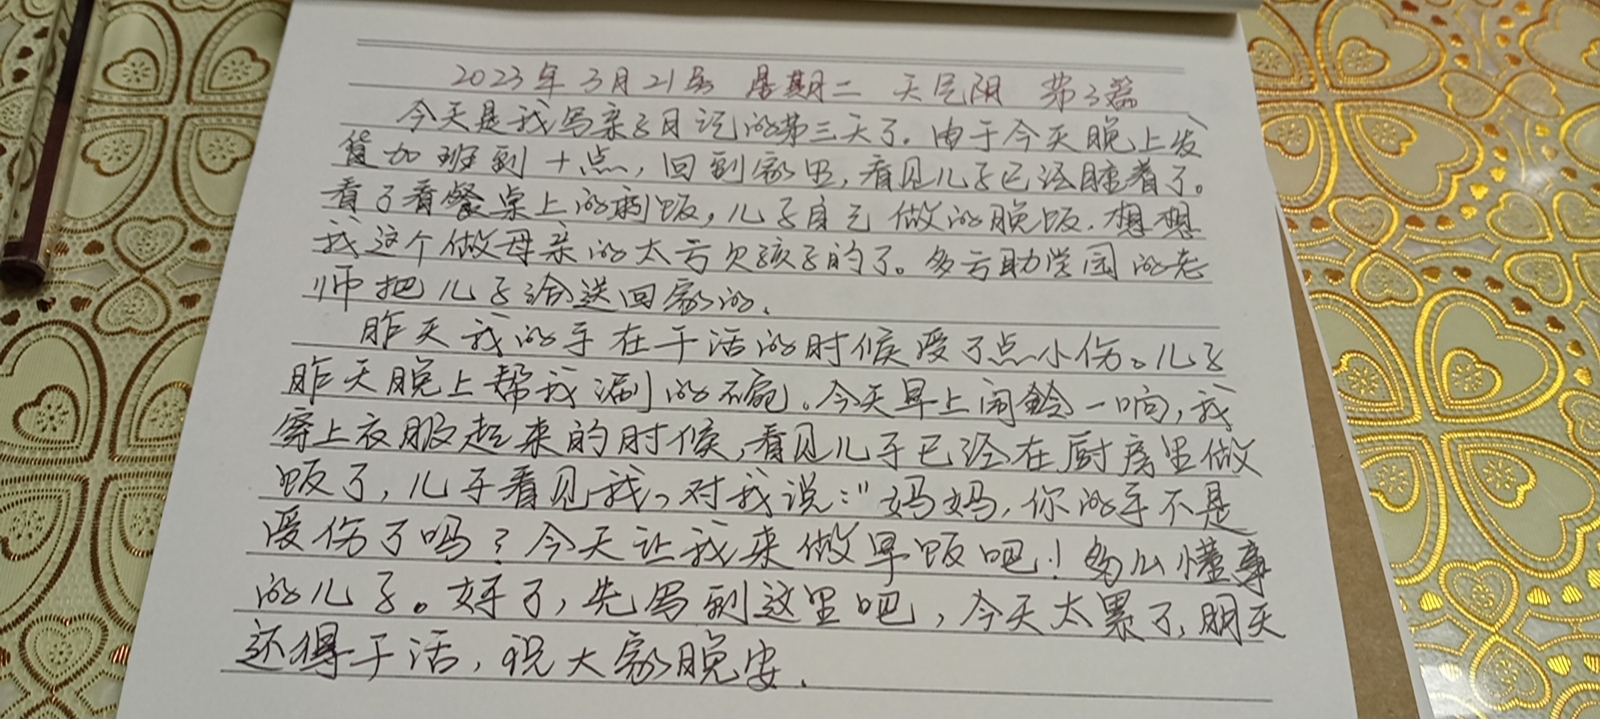 2023年3月21号 星期二 天气阴 第3篇
今天是我写亲子日记的第三天了。由于今天晚上发
货加班到十点，回到家里，看见儿子已经睡着了。
看了看餐桌上的剩饭，儿子自己做的晚饭.想想
我这个做母亲的太亏欠孩子的了。多亏助学园的老
师把儿子给送回家的.
昨天我的手在干活的时候受了点小伤。儿子
昨天晚上帮我涮的碗。今天早上闹铃一响，我
穿上衣服起来的时候，看见儿子已经在厨房里做
饭了，儿子看见我，对我说："妈妈，你的手不是
受伤了吗？今天让我来做早饭吧！多么懂事
的儿子。好了，先写到这里吧，今天太累了，明天
还得干活，祝大家晚安.